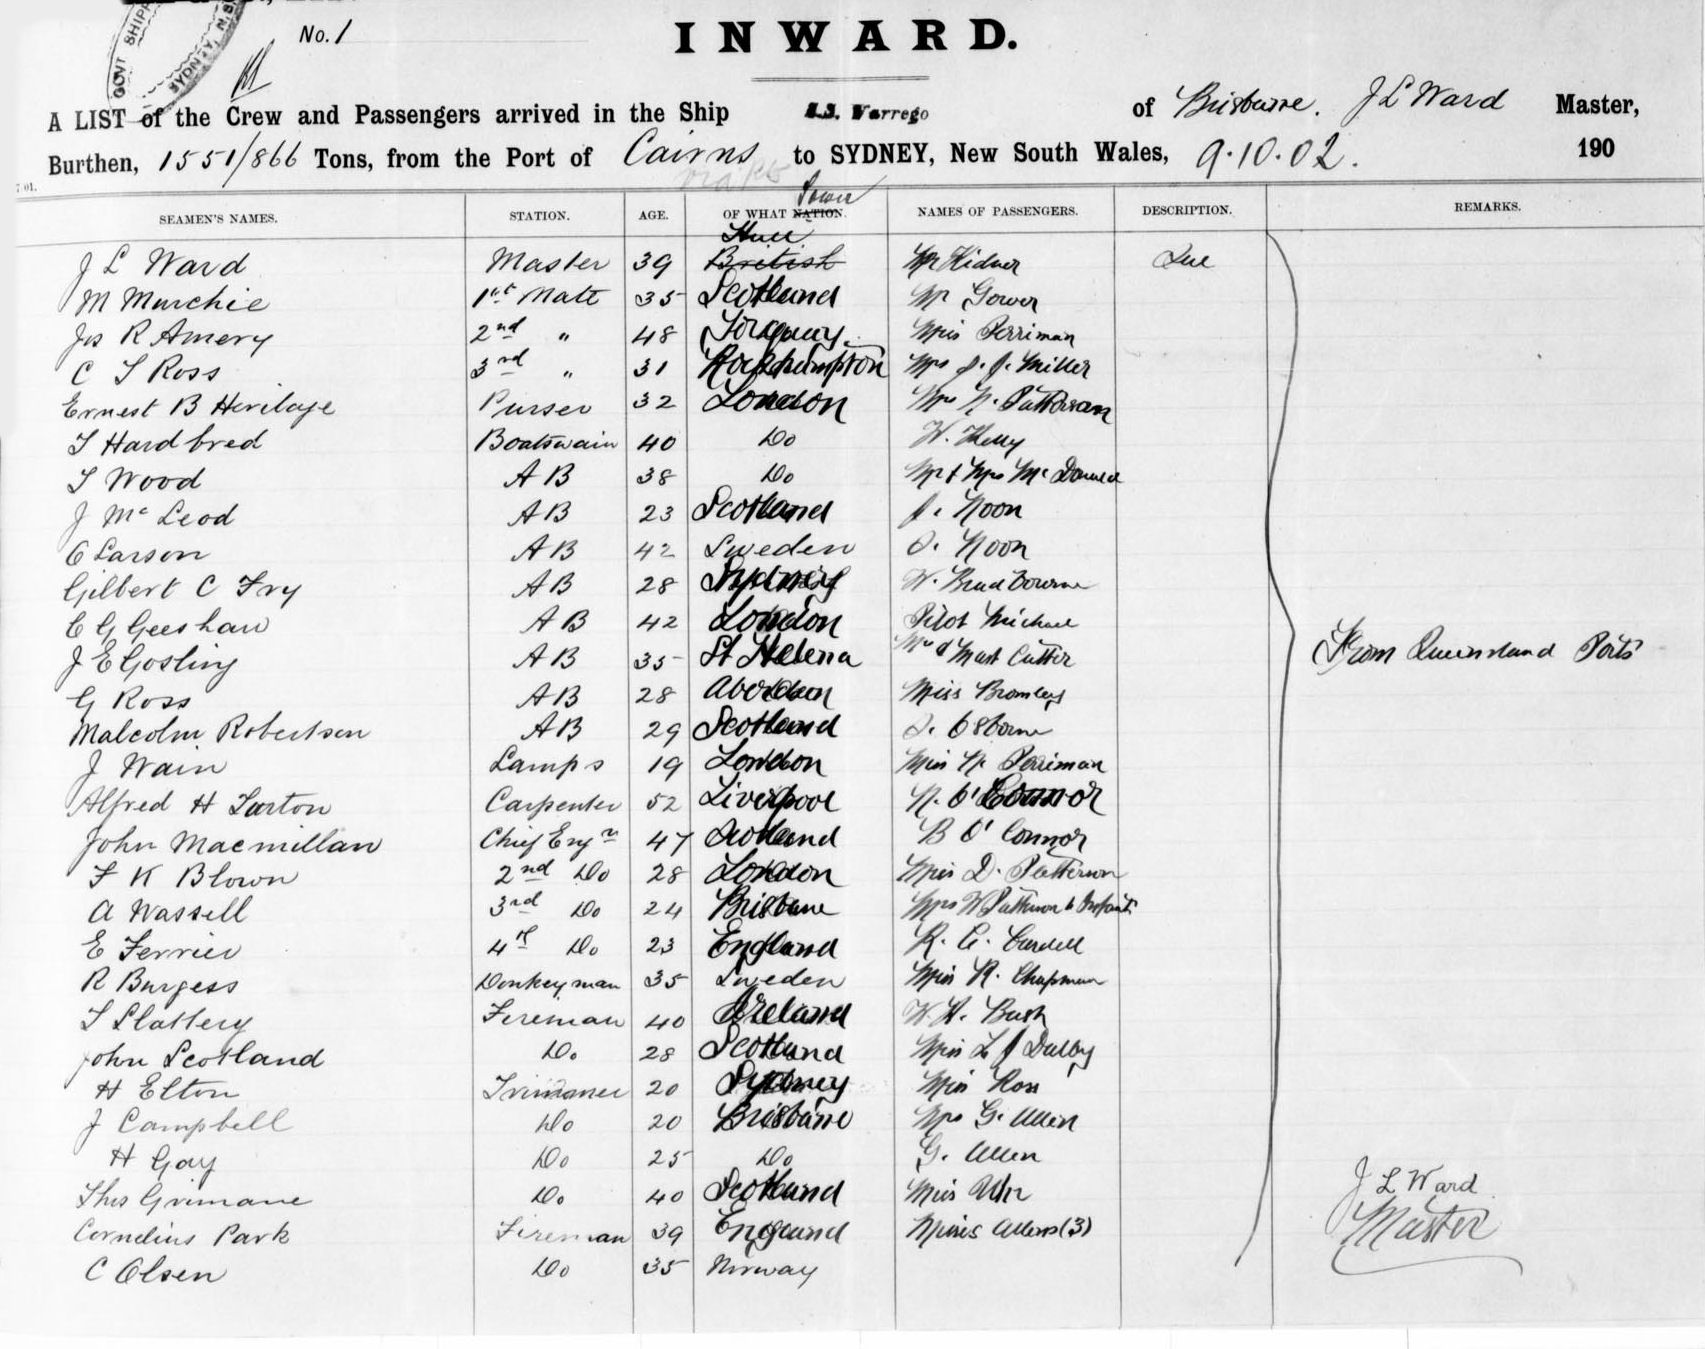 GOVT SHIPP
SYDNEY, N.S.
No. 1
INWARD.
A LIST of the Crew and Passengers arrived in the Ship S.S. Warrego of Brisbane. J L Ward Master,
Burthen, 1551/866 Tons, from the Port of Cairns to SYDNEY, New South Wales, 9.10.02. 190
7 01.
Town
SEAMEN'S NAMES. STATION. AGE. OF WHAT NATION. NAMES OF PASSENGERS. DESCRIPTION. REMARKS.
Hull
J L Ward Master 39 British Mr Kidner
M Murchie 1st Mate 35 Scotland Mr Gower
Jas R Amery 2nd " 48 Torquay. Miss Perriman
C S Ross 3rd " 31 Rockhampton Mrs J. J. Miller
Ernest B Heritage Purser 32 London Mrs N. Patterson
T Hardbred Boatswain 40 Do W. Kelly
T Wood A B 38 Do Mr & Mrs Mc Donald
J Mc Leod A B 23 Scotland J. Noon
C Larson A B 42 Sweden Noon
Gilbert C Fry A B 28 Sydney W. Bradbourne
C G Geeshaw A B 42 London Pilot Michael
J E Gosling A B 35 St Helena Mrs & Mast Cutter
From Queensland Ports
G Ross A B 28 Aberdeen Miss Bromley
Malcolm Robertson A B 29 Scotland Osborne
J Wain Lamps 19 London Miss N. Perriman
Alfred H Turton Carpenter 52 Liverpool N. O'Connor
John Macmillan Chief Engr 47 Scotland B O'Connor
F K Blown 2nd Do 28 London Miss D. Patterson
A Wassell 3rd Do 24 Brisbane Mrs W Patterson & Infant
E Ferrier 4th Do 23 England R. C. Cardell
R Burgess Donkeyman 35 Sweden Miss R. Chapman
T Slattery Fireman 40 Ireland W. H. Bush
John Scotland Do. 28 Scotland Miss L J Dalby
H Elton Trimmer 20 Sydney Miss Ross
J Campbell Do 20 Brisbane Mrs G. Allen
H Gay Do 25 Do G. Allen
Thos Grimane Do. 40 Scotland Miss Uhr
J L Ward
Cornelius Park Fireman 39 England Misses Allens (3)
Master
C Olsen Do 35 Norway